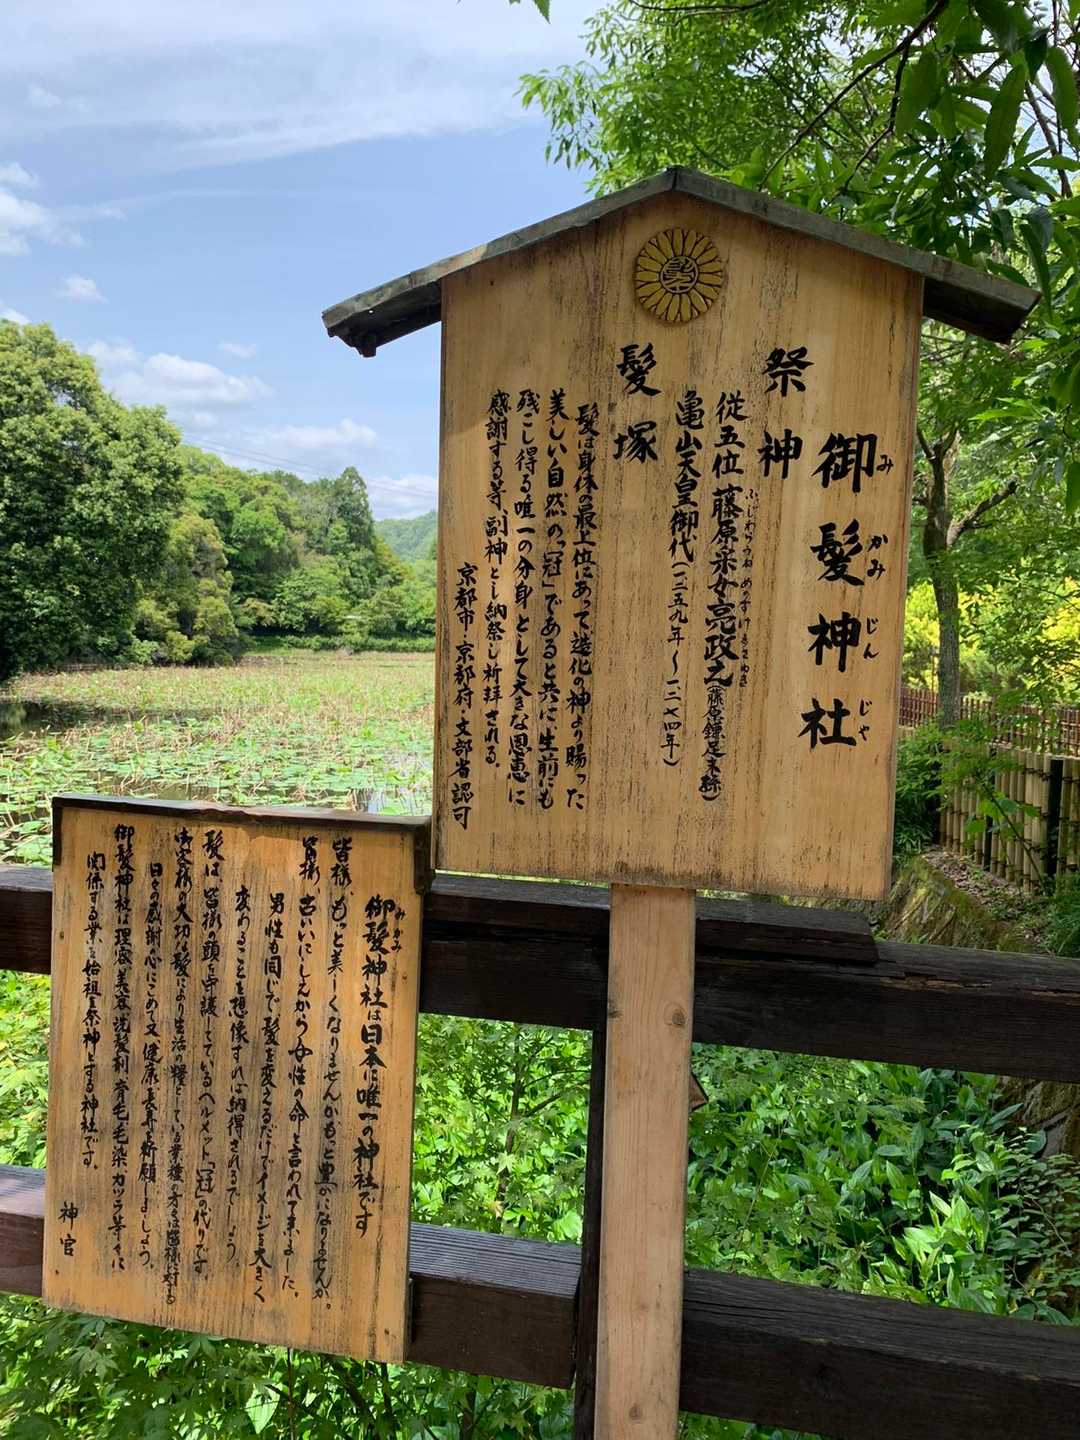 御髪神社
みかみじんじゃ
祭神
従五位 藤原采女亮政之(藤原鎌足末裔)
ふじわらうねめのすけまさゆき
亀山天皇御代(一二五九年〜一二七四年)
髪塚
髪は身体の最上位にあって造化の神より賜った
美しい自然の「冠」であると共に生前にも
残こし得る唯一の分身として大きな恩恵に
感謝する等、副神とし納祭し祈拝される。
京都市・京都府・文部省認可
御髪神社は日本に唯一の神社です
みかみ
皆様、もっと美しくなりませんかもっと豊かになりませんか。
皆様、古いにしえから女性の命と言われて来ました。
男性も同じで髪を変えるだけでイメージを大きく
変わることを想像すれば納得されるでしょう。
髪は皆様の頭を守護しているヘルメット「冠」の代りです。
お客様の大切な髪により生活の糧としている業種の方々は皆様に対する
日々の感謝心にこめて又、健康、長寿を祈願しましょう。
御髪神社は理容、美容、洗髪剤、育毛、毛染、カツラ等々に
関係する業を始祖を祭神とする神社です。
神官